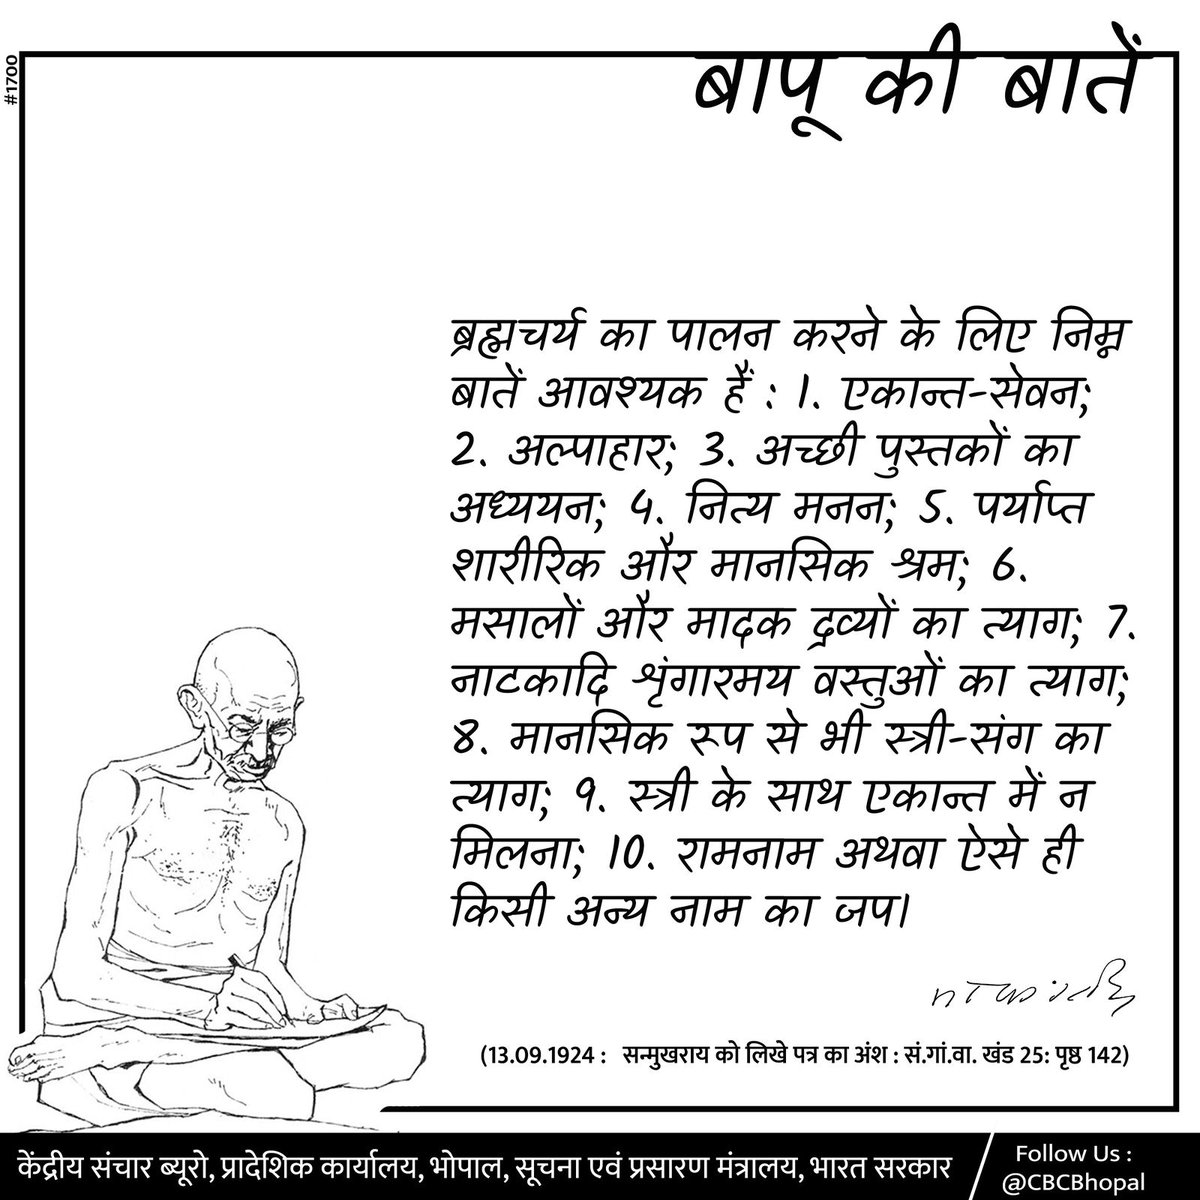 #1700
बापू की बातें
ब्रह्मचर्य का पालन करने के लिए निम्न
बातें आवश्यक हैं : 1. एकान्त-सेवन;
2. अल्पाहार; 3. अच्छी पुस्तकों का
अध्ययन; 4. नित्य मनन; 5. पर्याप्त
शारीरिक और मानसिक श्रम; 6.
मसालों और मादक द्रव्यों का त्याग; 7.
नाटकादि शृंगारमय वस्तुओं का त्याग;
8. मानसिक रूप से भी स्त्री-संग का
त्याग; 9. स्त्री के साथ एकान्त में न
मिलना; 10. रामनाम अथवा ऐसे ही
किसी अन्य नाम का जप।
(13.09.1924 : सन्मुखराय को लिखे पत्र का अंश : सं.गां.वा. खंड 25: पृष्ठ 142)
केंद्रीय संचार ब्यूरो, प्रादेशिक कार्यालय, भोपाल, सूचना एवं प्रसारण मंत्रालय, भारत सरकार
Follow Us :
@CBCBhopal